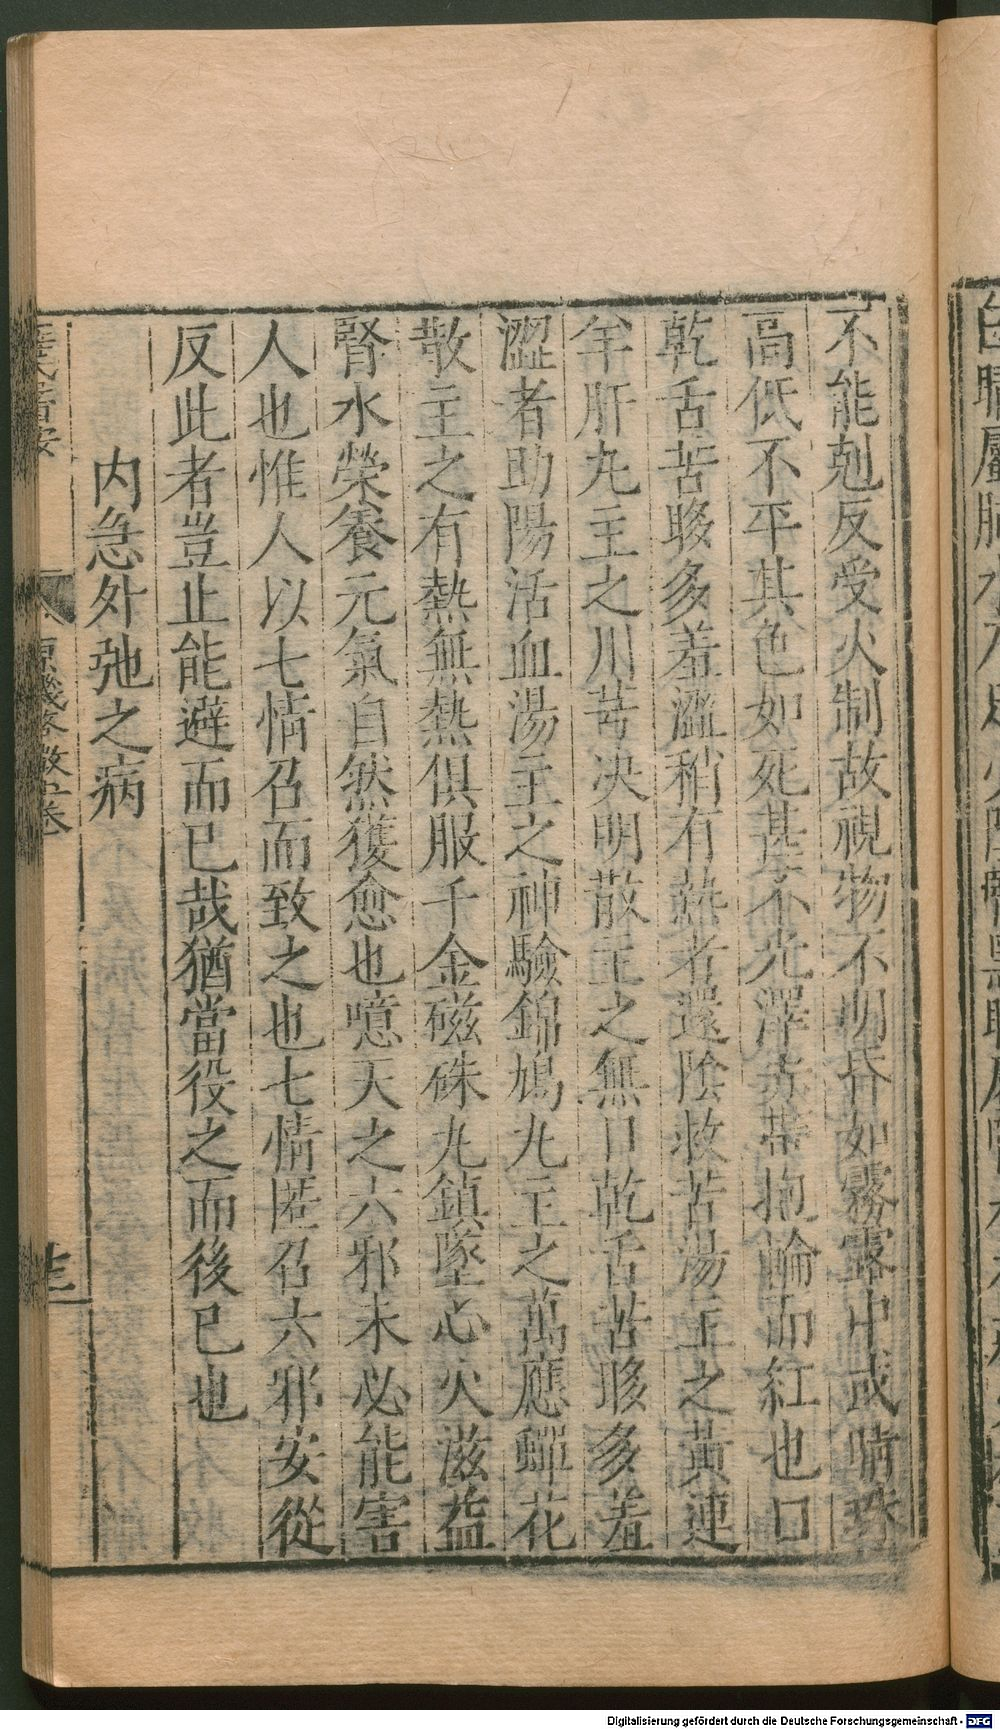 不能剋反受火制故視物不明昏如霧露中或睛珠
高低不平其色如死甚不光澤赤帶抱輪而紅也口
乾舌苦眵多羞澀稍有熱者還陰救苦湯主之黃連
羊肝丸主之川芎决明散主之無口乾舌苦眵多羞
澀者助陽活血湯主之神驗錦鳩丸主之萬應蟬花
散主之有熱無熱俱服千金磁硃丸鎮墜心火滋益
腎水榮養元氣自然獲愈也噫天之六邪未必能害
人也惟人以七情召而致之也七情匿召六邪安從
反此者豈止能避而已哉猶當役之而後已也
內急外弛之病
薛氏醫按
原機啓微上卷
十三
Digitalisierung gefördert durch die Deutsche Forschungsgemeinschaft - DFG